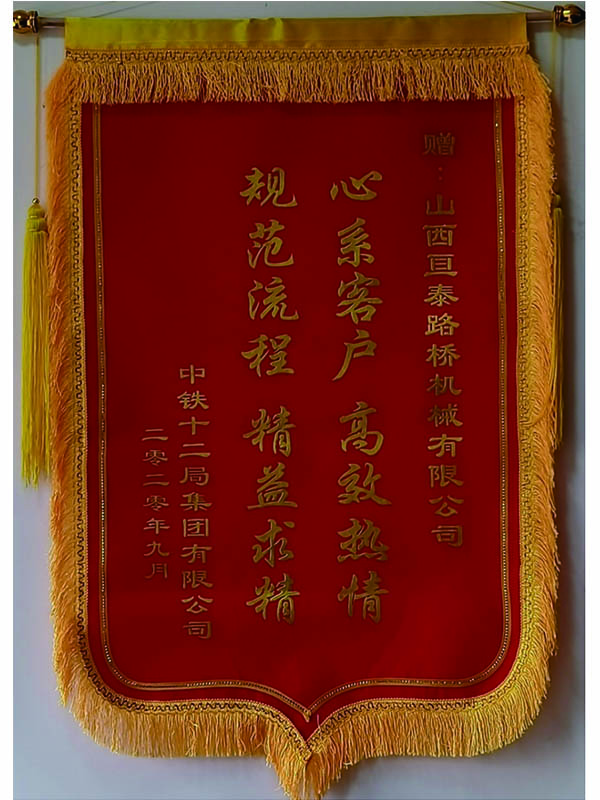 赠：山西亘泰路桥机械有限公司
心系客户 高效热情
规范流程 精益求精
中铁十二局集团有限公司
二零二零年九月